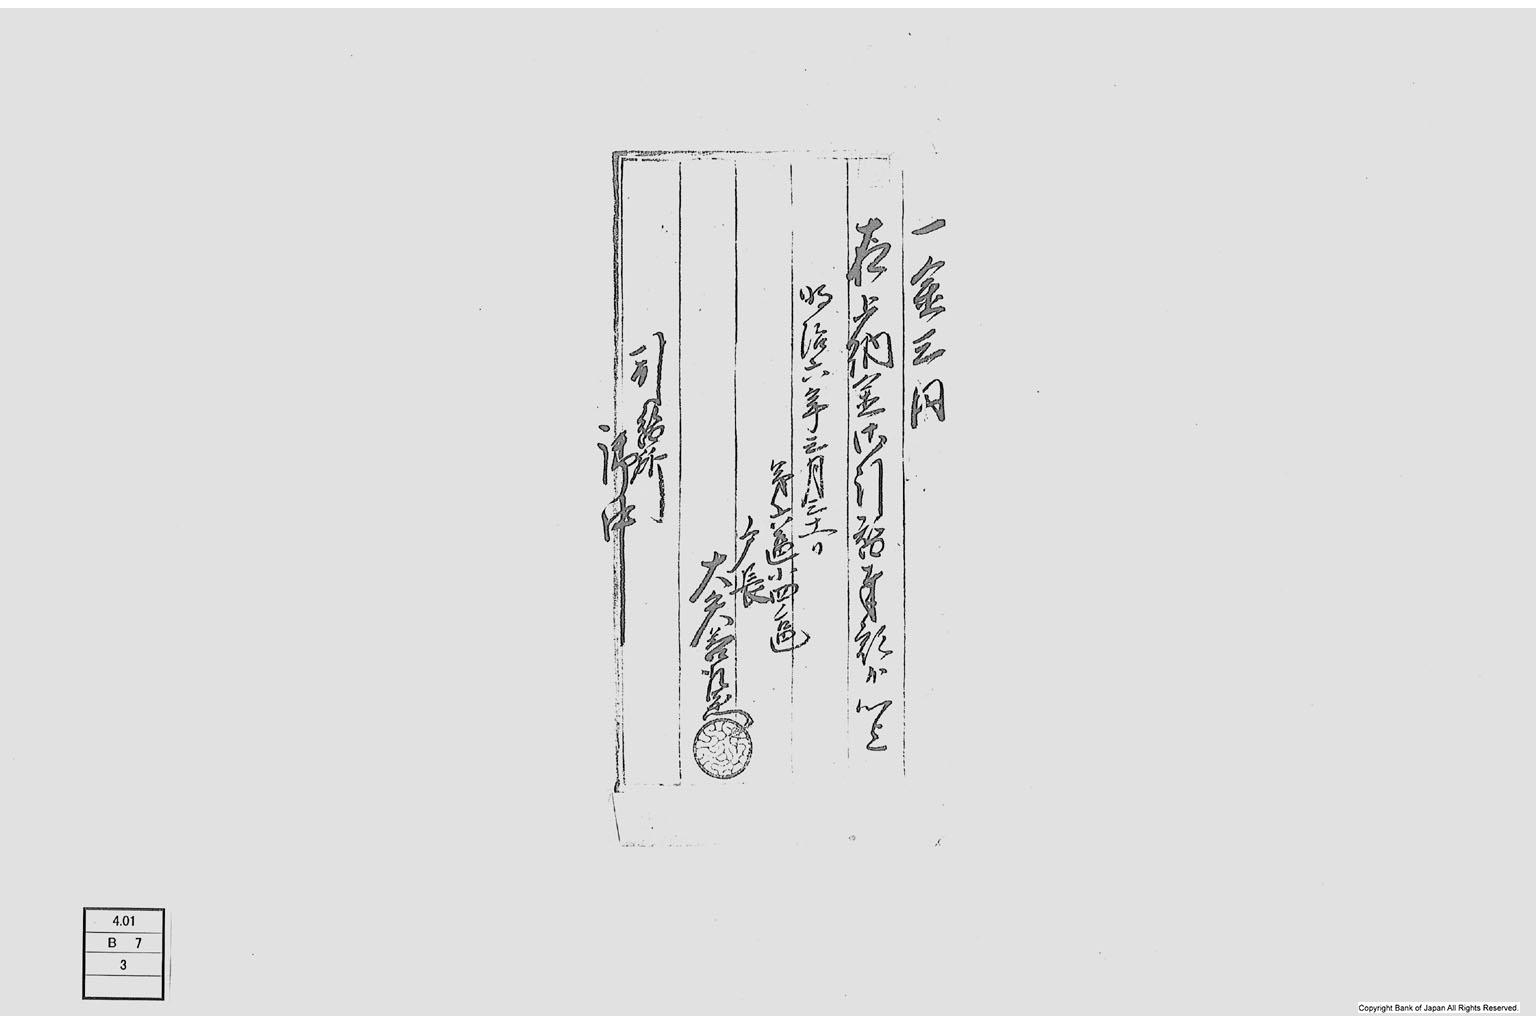 一金三円
右上納金御引替奉願候以上
明治六年三月三十一日
第六區小四區
戸長
大矢
引替所
御中
4.01
B 7
3
Copyright Bank of Japan All Rights Reserved.